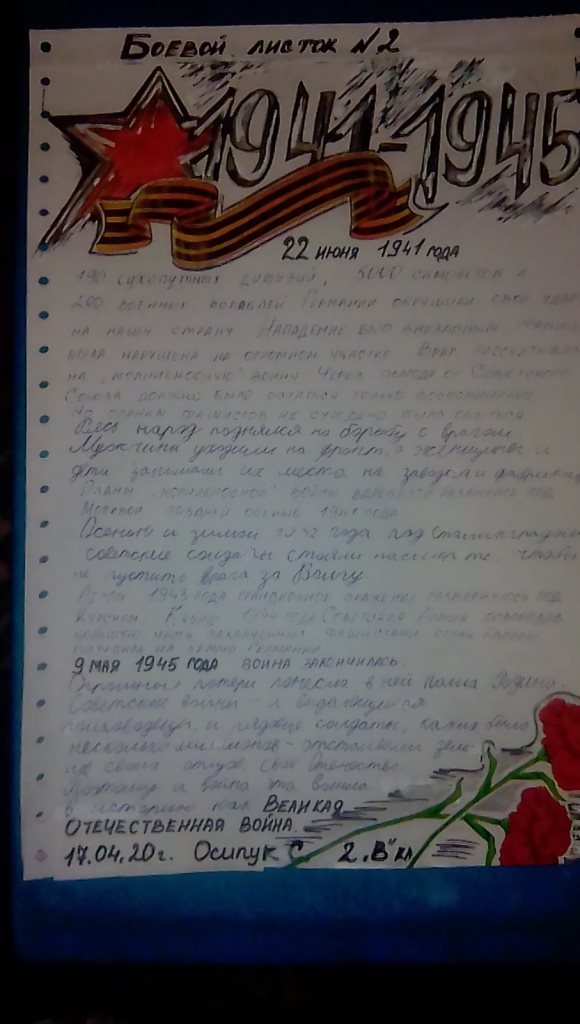 Боевой листок №2
1941-1945
22 июня 1941 года
190 сухопутных дивизий, 5000 самолетов и
200 военных кораблей Германии обрушили свой
на нашу страну. Нападение было внезапным,
была нарушена на огромном участке. Враг рассчитывал
на "молниеносную" войну. Через полгода от Советского
Союза должно было остаться только воспоминание.
Но планам фашистов не суждено было сбыться.
Весь народ поднялся на борьбу с врагом.
Мужчины уходили на фронт, а женщины и
дети занимали их места на заводах и фабриках.
Планы "молниеносной" войны развеялись под
Москвой поздней осенью 1941 года.
Осенью и зимой 1942 года под Сталинградом
советские солдаты стояли насмерть, чтобы
не пустить врага за Волгу.
Летом 1943 года грандиозное сражение развернулось под
Курском. К концу 1944 года Советская Армия освободила
большую часть захваченных фашистами
на землю Германии.
9 мая 1945 года война закончилась.
Огромные потери понесла в ней наша Родина.
Советские воины - и выдающиеся
полководцы, и рядовые солдаты, каких было
несколько миллионов - отстояли
своих отцов, своё Отечество.
Поэтому и война эта вошла
в историю как Великая
Отечественная война.
17.04.20г. Осипук С. 2 "В" кл